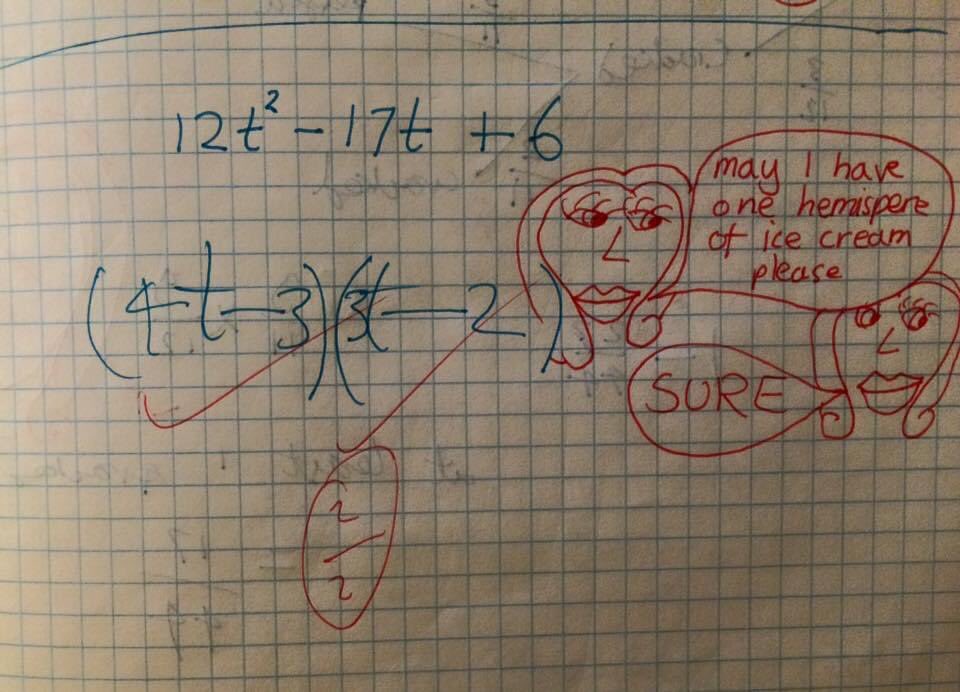 12t² - 17t + 6
(4t - 3)(3t - 2)
may I have
one hemispere
of ice cream
please
SURE
2
2